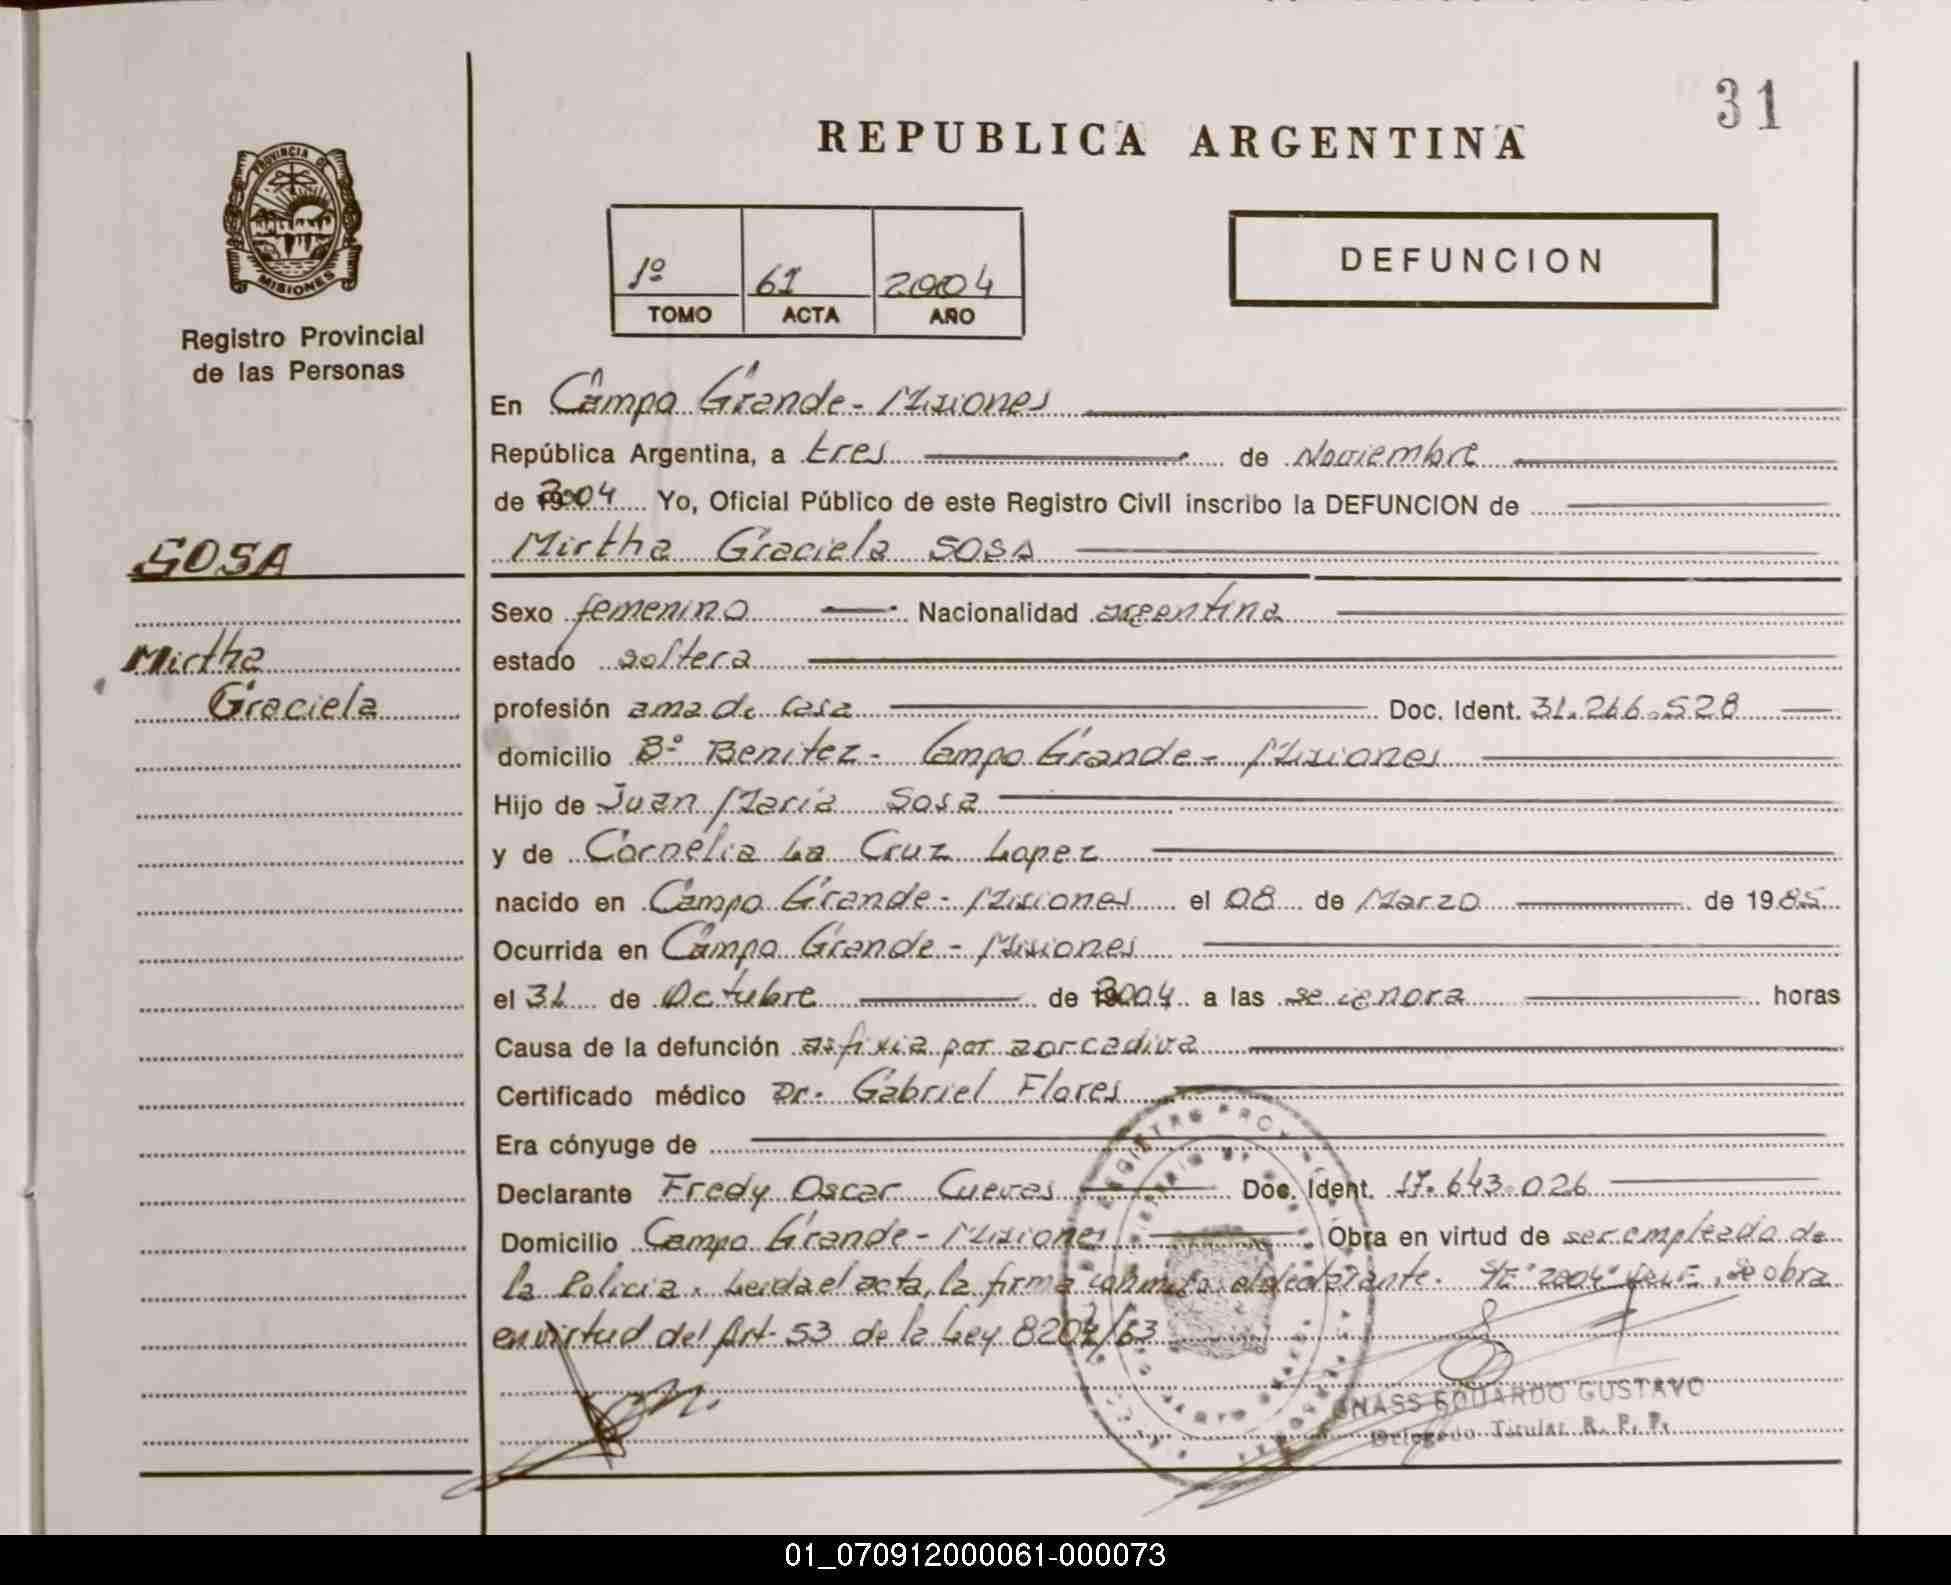 31
REPUBLICA ARGENTINA
PROVINCIA DE
MISIONES
Registro Provincial
de las Personas
1º 61 2004
TOMO ACTA AÑO
DEFUNCION
En Campo Grande - Misiones
República Argentina, a tres de Noviembre
de 2004 Yo, Oficial Público de este Registro Civil inscribo la DEFUNCION de
SOSA
Mirtha Graciela SOSA
Sexo femenino Nacionalidad argentina
Mirtha
estado soltera
Graciela
profesión ama de casa Doc. Ident. 31.266.528
domicilio Bº Benitez - Campo Grande - Misiones
Hijo de Juan María Sosa
y de Cornelia La Cruz Lopez
nacido en Campo Grande - Misiones el 08 de Marzo de 1985
Ocurrida en Campo Grande - Misiones
el 31 de Octubre de 2004 a las se ignora horas
Causa de la defunción asfixia por aorcadura
Certificado médico Dr. Gabriel Flores
Era cónyuge de
Declarante Fredy Oscar Cuevas Doc. Ident. 17.643.026
Domicilio Campo Grande - Misiones Obra en virtud de ser empleado de
la Policia. Leida el acta, la firma conmigo el declarante. "2004" Se obra
en virtud del Art. 53 de la Ley 8204/63
EDUARDO GUSTAVO
Delegado Titular R. P. P.
01_070912000061-000073